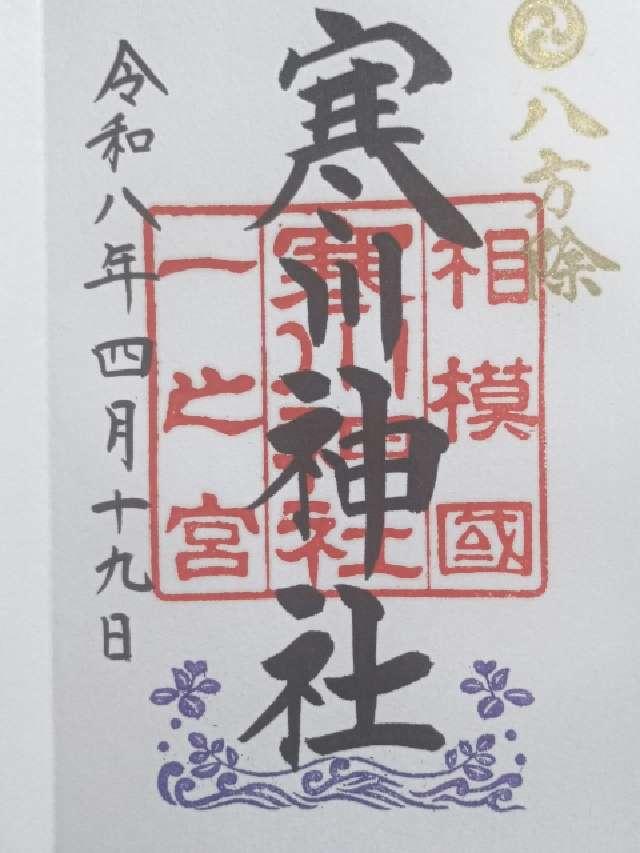 八方除
寒川神社
相模國
寒川神社
一之宮
令和八年四月十九日